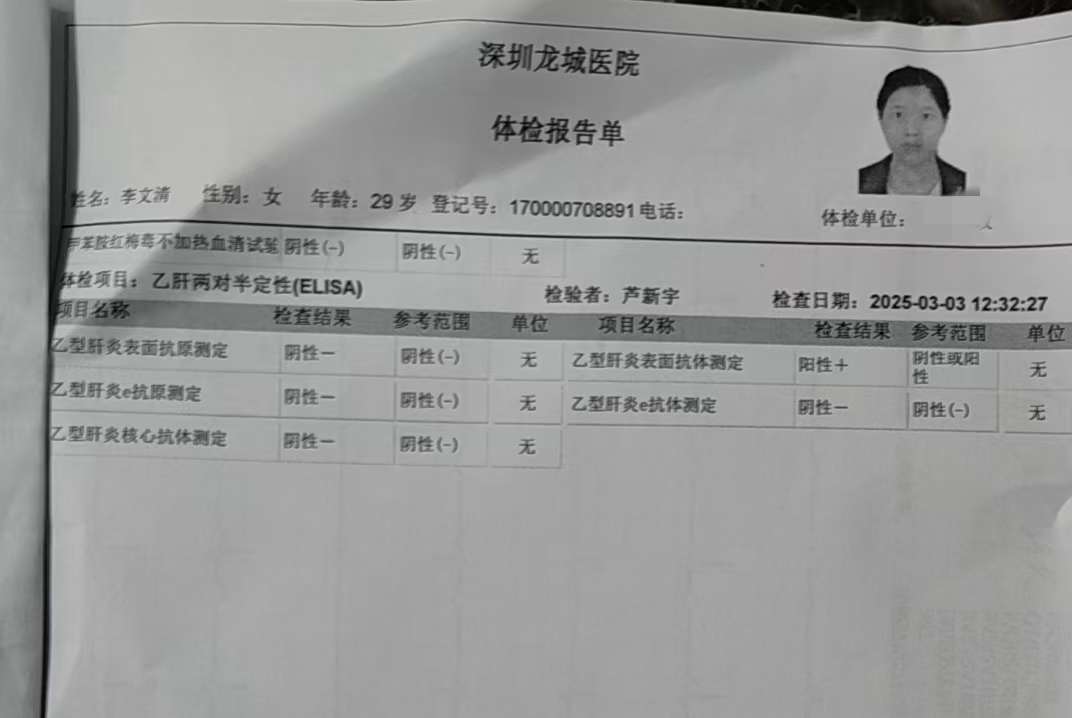 深圳龙城医院
体检报告单
姓名：李文清 性别：女 年龄：29 岁 登记号：170000708891 电话： 体检单位：
甲苯胺红梅毒不加热血清试验 阴性(-) 阴性(-) 无
体检项目：乙肝两对半定性(ELISA) 检验者：芦新宇 检查日期：2025-03-03 12:32:27
项目名称 检查结果 参考范围 单位 项目名称 检查结果 参考范围 单位
乙型肝炎表面抗原测定 阴性一 阴性(-) 无 乙型肝炎表面抗体测定 阳性＋ 阴性或阳性 无
乙型肝炎e抗原测定 阴性一 阴性(-) 无 乙型肝炎e抗体测定 阴性一 阴性(-) 无
乙型肝炎核心抗体测定 阴性一 阴性(-) 无